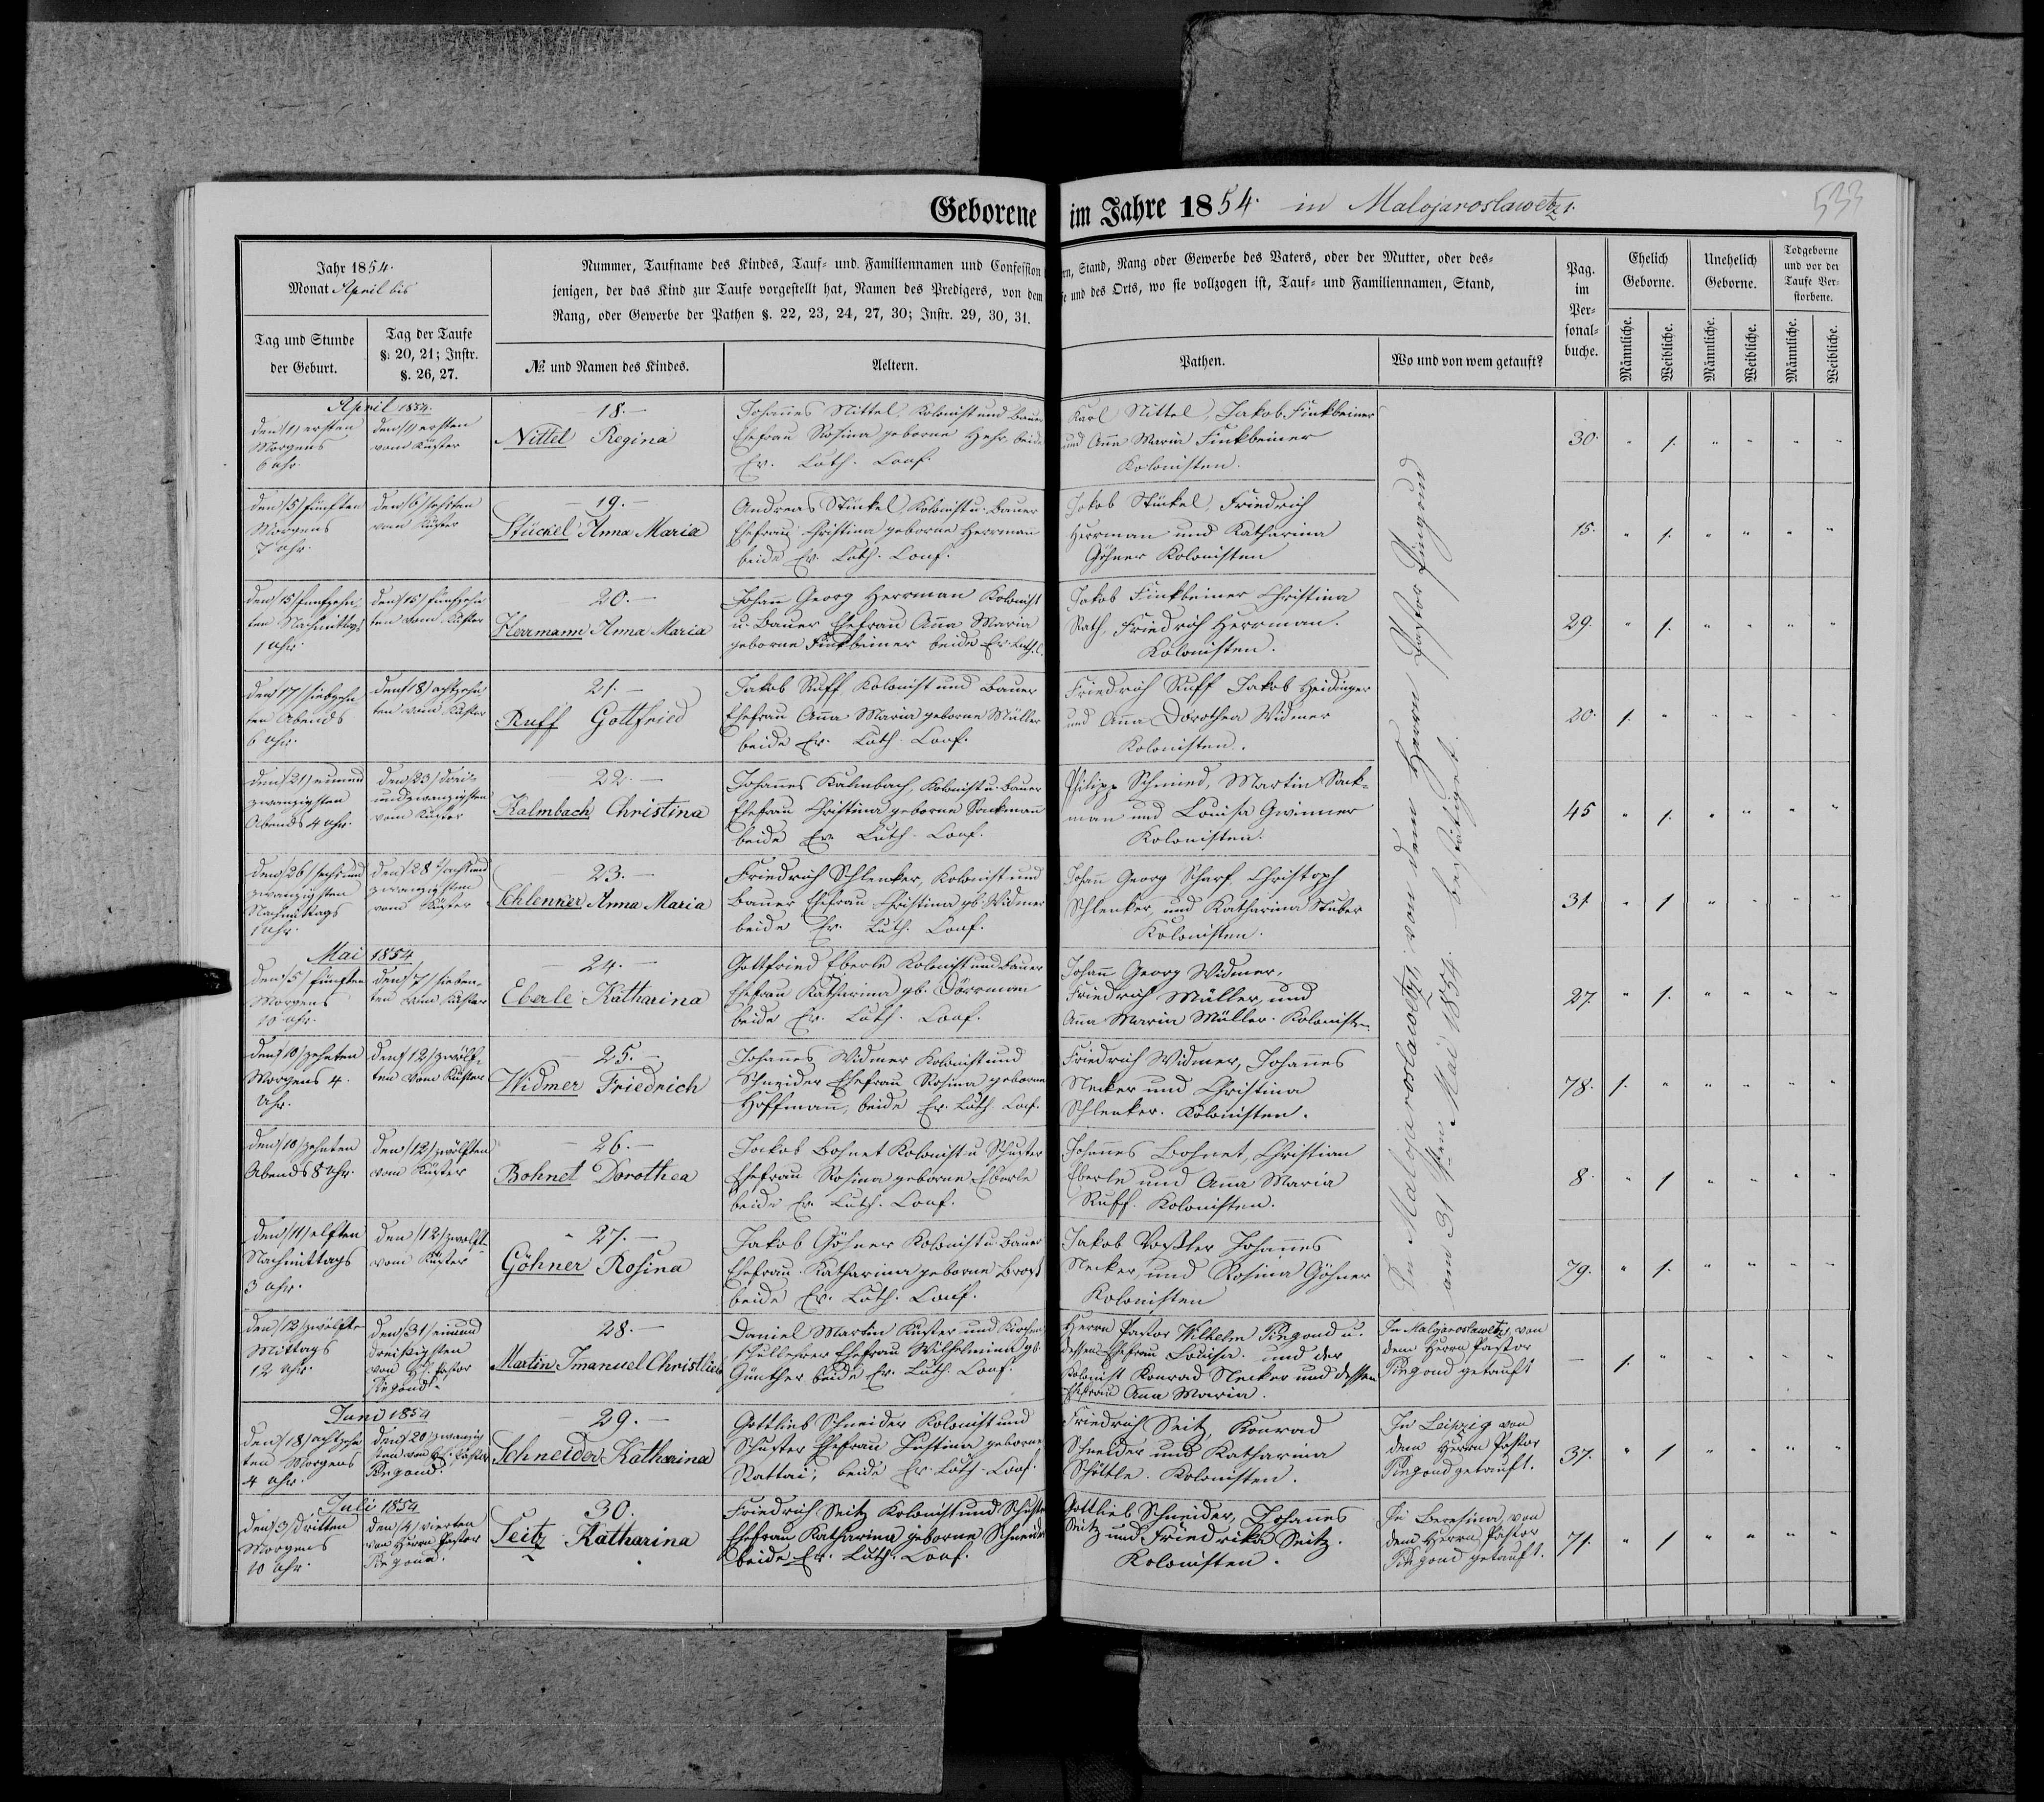 Geborene im Jahre 1854. in Malojaroslawetz 1.
533
Jahr 1854.
Monat April bis
Nummer, Taufname des Kindes, Tauf- und Familiennamen und Confession
jenigen, der das Kind zur Taufe vorgestellt hat, Namen des Predigers, von dem
Rang, oder Gewerbe der Pathen §. 22, 23, 24, 27, 30; Instr. 29, 30, 31.
rn, Stand, Rang oder Gewerbe des Vaters, oder der Mutter, oder des-
e und des Orts, wo sie vollzogen ist, Tauf- und Familiennamen, Stand,
Tag und Stunde
der Geburt.
Tag der Taufe
§. 20, 21; Instr.
§. 26, 27.
№ und Namen des Kindes.
Aeltern.
Pathen.
Wo und von wem getauft?
Pag.
im
Per-
sonal-
buche.
Ehelich
Geborne.
Unehelich
Geborne.
Todgeborne
und vor der
Taufe Ver-
storbene.
Männliche.
Weibliche.
Männliche.
Weibliche.
Männliche.
Weibliche.
April 1854.
den /1/ ersten
Morgens
6 Uhr.
den /1/ ersten
vom Küster
18.
Nittel Regina
Johannes Nittel, Kolonist und Bauer
Ehefrau Rosina geborne Hehr beide
Ev. Luth. Conf.
Karl Nittel, Jakob Finkbeiner
und Anna Maria Finkbeiner
Kolonisten.
30. " 1. " " " "
den /5/ fünften
Morgens
7 Uhr.
den /6/ sechsten
vom Küster
19.
Stückel Anna Maria
Andreas Stückel, Kolonist u. Bauer
Ehefrau Christina geborne Herrmann
beide Ev. Luth. Conf.
Jakob Stückel, Friedrich
Herrman und Katharina
Göhner Kolonisten
15. " 1. " " " "
den /15/ funfzehn-
ten Nachmittags
1 Uhr.
den /15/ funfzehn
ten vom Küster
20.
Herrmann Anna Maria
Johann Georg Herrman Kolonist
u. Bauer Ehefrau Anna Maria
geborne Finkbeiner beide Ev. Luth. C.
Jakob Finkbeiner Christina
Rath, Friedrich Herrman.
Kolonisten.
29. " 1. " " " "
den /17/ siebzehn
ten Abends
6 Uhr.
den /18/ achtzehn
ten vom Küster
21.
Ruff Gottfried
Jakob Ruff Kolonist und Bauer
Ehefrau Anna Maria geborne Müller
beide Ev. Luth. Conf.
Friedrich Ruff Jakob Heidinger
und Anna Dorothea Widmer
Kolonisten.
20. 1. " " " " "
den /21/ einund
zwanzigsten
Abends 4 Uhr.
den /23/ drei-
undzwanzigsten
vom Küster
22.
Kalmbach Christina
Johannes Kalmbach, Kolonist u. Bauer
Ehefrau Christina geborne Sackmann
beide Ev. Luth. Conf.
Philipp Schmied, Martin Sack-
man und Louisa Gwinner
Kolonisten.
45 " 1. " " " "
den /26/ sechsund
zwanzigsten
Nachmittags
1 Uhr.
den /28/ achtund
zwanzigsten
vom Küster
23.
Schlenker Anna Maria
Friedrich Schlenker, Kolonist und
Bauer Ehefrau Christina gb. Widmer
beide Ev. Luth. Conf.
Johann Georg Scharf, Christoph
Schlenker, und Katharina Stuber
Kolonisten.
31 " 1 " " " "
Mai 1854
den /5/ fünften
Morgens
10 Uhr.
den /7/ sieben-
ten vom Küster
24.
Eberle Katharina
Gottfried Eberle Kolonist und Bauer
Ehefrau Katharina gb. Dörrman
beide Ev. Luth. Conf.
Johann Georg Widmer,
Friedrich Müller, und
Anna Maria Müller. Kolonisten.
27. " 1. " " " "
den /10/ zehnten
Morgens 4.
Uhr.
den /12/ zwölf-
ten vom Küster
25.
Widmer Friedrich
Johannes Widmer Kolonist und
Schneider Ehefrau Rosina geborne
Hoffmann, beide Ev. Luth. Conf.
Friedrich Widmer, Johannes
Necker und Christina
Schlenker. Kolonisten.
78. 1. " " " " "
den /10/ zehnten
Abends 8 Uhr.
den /12/ zwölften
vom Küster
26.
Bohnet Dorothea
Jakob Bohnet Kolonist u. Schuster
Ehefrau Rosina geborne Eberle
beide Ev. Luth. Conf.
Johannes Bohnet, Christian
Eberle und Anna Maria
Ruff. Kolonisten.
8. " 1 " " " "
den /11/ elften
Nachmittags
3 Uhr.
den /12/ zwölft-
vom Küster
27.
Göhner Rosina
Jakob Göhner Kolonist u. Bauer
Ehefrau Katharina geborne Brost
beide Ev. Luth. Conf.
Jakob Voßler Johannes
Necker, und Rosina Göhner
Kolonisten
79. " 1. " " " "
In Malojaroslawetz 1, von dem Herrn Pastor Pingoud
am 31sten Mai 1854. bestätiget.
den /12/ zwölften
Mittags
12 Uhr.
den /31/ einund
dreißigsten
von H. Pastor
Pingoud.
28.
Martin Imanuel Christlieb
Daniel Martin Küster und Kirchen
schullehrer Ehefrau Wilhelmina gb.
Günther beide Ev. Luth. Conf.
Herrn Pastor Wilhelm Pingoud u.
dessen Ehefrau Louisa. und der
Kolonist Konrad Necker und dessen
Ehefrau Anna Maria.
In Malojaroslawetz 1, von
dem Herrn Pastor
Pingoud getauft
— 1. " " " " "
Juni 1854
den /18/ achtzehn
ten Morgens
4 Uhr.
den /20/ zwanzig
sten von H. Pastor
Pingoud.
29.
Schneider Katharina
Gottlieb Schneider Kolonist und
Schuster Ehefrau Justina geborne
Rattai, beide Ev. Luth. Conf.
Friedrich Seitz, Konrad
Schneider und Katharina
Schöttle. Kolonisten.
In Leipzig von
dem Herrn Pastor
Pingoud getauft.
37. " 1 " " " "
Juli 1854
den /3/ dritten
Morgens
10 Uhr.
den /4/ vierten
von Herrn Pastor
Pingoud.
30.
Seitz Katharina
Friedrich Seitz Kolonist und Schuster
Ehefrau Katharina geborne Schneider
beide Ev. Luth. Conf.
Gottlieb Schneider, Johannes
Seitz und Friedrika Seitz.
Kolonisten.
In Beresina, von
dem Herrn Pastor
Pingoud getauft.
71. " 1 " " " "